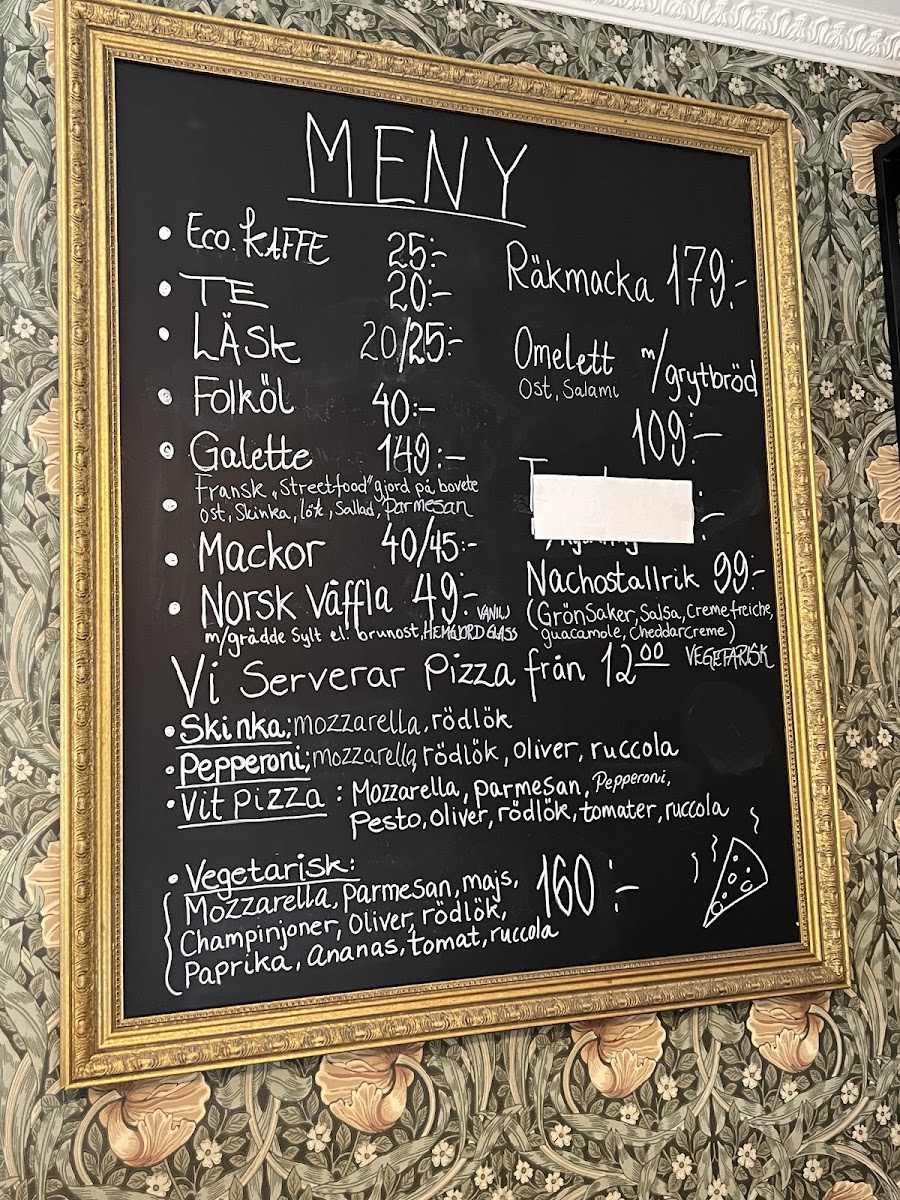 MENY
Eco. KAFFE 25:-
TE 20:-
LÄSK 20/25:-
Folköl 40:-
Galette 149:-
Fransk „Streetfood" gjord på bovete
ost, Skinka, lök, Sallad, Parmesan
Mackor 40/45:-
Norsk Väffla 49:-
m/grädde Sylt el. brunost, HEMGJORD GLASS
Räkmacka 179:-
Omelett m/grytbröd
Ost, Salami
109:-
Nachostallrik 99:-
(Grönsaker, Salsa, Cremefreiche,
guacamole, Cheddarcreme)
VEGETARISK
Vi Serverar Pizza från 12 00
Skinka; mozzarella, rödlök
Pepperoni; mozzarella, rödlök, oliver, ruccola
Vit pizza : Mozzarella, parmesan, Pepperoni,
Pesto, oliver, rödlök, tomater, ruccola
Vegetarisk:
Mozzarella, Parmesan, majs, 160:-
Champinjoner, Oliver, rödlök,
Paprika, Ananas, tomat, ruccola